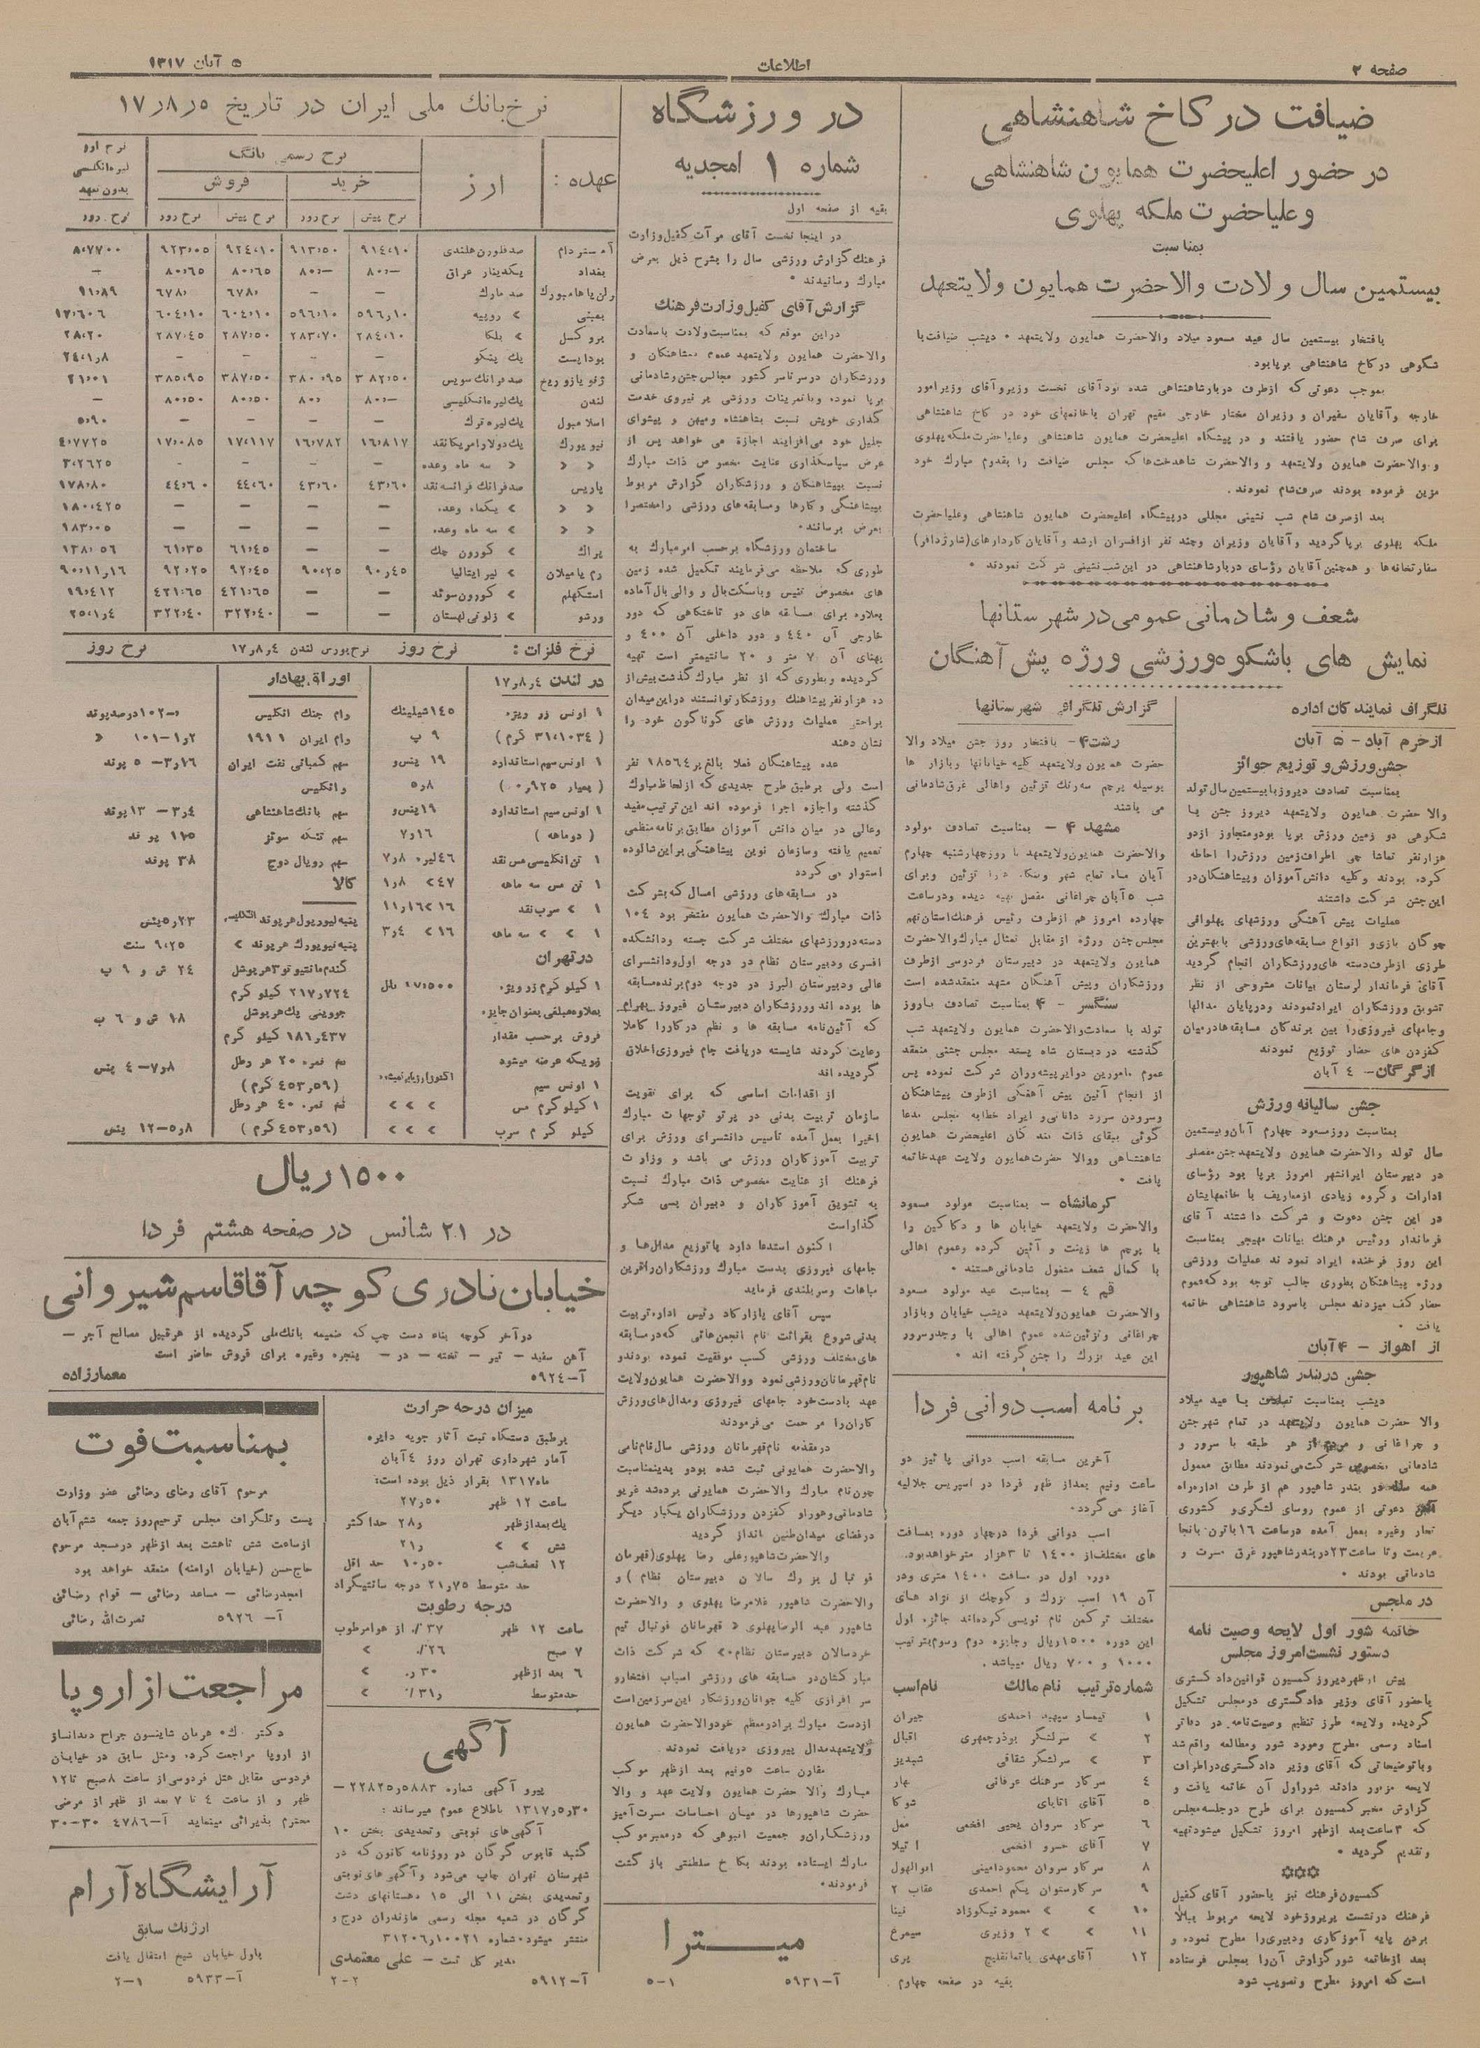 صفحه ۲
اطلاعات
۵ آبان ۱۳۱۷
ضیافت در کاخ شاهنشاهی
در حضور اعلیحضرت همایون شاهنشاهی
و علیاحضرت ملکه پهلوی
بمناسبت
بیستمین سال ولادت والاحضرت همایون ولایتعهد
بافتخار بیستمین سال عید مسعود میلاد والاحضرت همایون ولایتعهد • دیشب ضیافت با
شکوهی در کاخ شاهنشاهی برپا بود.
بموجب دعوتی که ازطرف دربارشاهنشاهی شده بود آقای نخست وزیر و آقای وزیر امور
خارجه و آقایان سفیران و وزیران مختار خارجی مقیم تهران باخانمهای خود در کاخ شاهنشاهی
برای صرف شام حضور یافتند و در پیشگاه اعلیحضرت همایون شاهنشاهی وعلیاحضرت ملکه پهلوی
و والاحضرت همایون ولایتعهد و والاحضرت شاهدختها که مجلس ضیافت را بقدوم مبارک خود
مزین فرموده بودند صرف شام نمودند.
بعد ازصرف شام شب نشینی مجللی درپیشگاه اعلیحضرت همایون شاهنشاهی وعلیاحضرت
ملکه پهلوی برپا گردید و آقایان وزیران وچند نفر ازافسران ارشد و آقایان کاردارهای (شارژدافر)
سفارتخانه‌ها و همچنین آقایان رؤسای دربارشاهنشاهی در این شب نشینی شرکت نمودند •
شعف و شادمانی عمومی در شهرستانها
نمایش های باشکوه ورزشی ورژه پیش آهنگان
تلگراف نمایندگان اداره
از خرم آباد – ۵ آبان
جشن ورزش و توزیع جوائز
بمناسبت تصادف دیروز با بیستمین سال تولد
والا حضرت همایون ولایتعهد دیروز جشن با
شکوهی در زمین ورزش برپا بود متجاوز ازدو
هزارنفر تماشاچی اطراف زمین ورزش را احاطه
کرده بودند وکلیه دانش آموزان و پیشاهنگان در
این جشن شرکت داشتند
عملیات پیش آهنگی ورزشهای پهلوانی
چوگان بازی و انواع مسابقه های ورزشی با بهترین
طرزی ازطرف دسته های ورزشکاران انجام گردید
آقای فرماندار لرستان بیانات مشروحی از نظر
تشویق ورزشکاران ایراد نمودند ودرپایان مدالها
وجامهای فیروزی را بین برندگان مسابقه هادرمیان
کفزدن های حضار توزیع نمودند
از گرگان – ۴ آبان
جشن سالیانه ورزش
بمناسبت روز مسعود چهارم آبان و بیستمین
سال تولد والاحضرت همایون ولایتعهد جشن مفصلی
در دبیرستان ایرانشهر امروز برپا بود رؤسای
ادارات وگروه زیادی ازمعاریف با خانمهایشان
در این جشن دعوت و شرکت داشتند آقای
فرماندار ورئیس فرهنگ بیانات مهیجی بمناسبت
این روز فرخنده ایراد نمودند عملیات ورزشی
ورژه پیشاهنگان بطوری جالب توجه بود که عموم
حضار کف میزدند مجلس باسرود شاهنشاهی خاتمه
یافت •
از اهواز – ۴ آبان
جشن در بندر شاهپور
دیشب بمناسبت تصادف با عید میلاد
والا حضرت همایون ولایتعهد در تمام شهر جشن
و چراغانی و مردم از هر طبقه با سرور و
شادمانی مخصوص شرکت می‌نمودند مطابق معمول
همه ساله در بندر شاهپور هم از طرف اداره راه
آهن دعوتی از عموم روسای لشگری و کشوری
تجار وغیره بعمل آمده درساعت ۱۶ باترن بآنجا
عزیمت و تا ساعت ۲۳ در بندر شاهپور غرق مسرت و
شادمانی بودند •
در مجلس
خاتمه شور اول لایحه وصیت نامه
دستور نشست امروز مجلس
پیش از ظهر دیروز کمسیون قوانین دادگستری
باحضور آقای وزیر دادگستری درمجلس تشکیل
گردیده ولایحه طرز تنظیم وصیت‌نامه در دفاتر
اسناد رسمی مطرح ومورد شور ومطالعه واقع شد
وباتوضیحاتی که آقای وزیر دادگستری دراطراف
لایحه مزبور دادند شوراول آن خاتمه یافت و
گزارش مخبر کمسیون برای طرح درجلسه مجلس
که ۳ ساعت بعد ازظهر امروز تشکیل میشود تهیه
وتقدیم گردید •
کمسیون فرهنگ نیز باحضور آقای کفیل
فرهنگ درنشست پریروزخود لایحه مربوط ببالا
بردن پایه آموزگاری ودبیری را مطرح نموده و
بعد ازخاتمه شور گزارش آن را بمجلس فرستاده
است که امروز مطرح و تصویب شود
گزارش تلگرافی شهرستانها
رشت ۴ – بافتخار روز جشن میلاد والا
حضرت همایون ولایتعهد کلیه خیابانها وبازار ها
بوسیله پرچم سه‌رنگ تزئین واهالی غرق شادمانی
می باشند
مشهد ۴ – بمناسبت تصادف مولود
والاحضرت همایون ولایتعهد با روزچهارشنبه چهارم
آبان ماه تمام شهر و تزئین وبرای
شب ۵ آبان چراغانی مفصل تهیه دیده ودرساعت
چهارده امروز هم ازطرف رئیس فرهنگ استان نهم
مجلس جشن ورژه از مقابل تمثال مبارک والاحضرت
همایون ولایتعهد در دبیرستان فردوسی ازطرف
ورزشکاران وپیش آهنگان مشهد منعقد شده است
سنگسر – ۴ بمناسبت تصادف باروز
تولد با سعادت والاحضرت همایون ولایتعهد شب
گذشته در دبستان شاه پسند مجلس جشنی منعقد
عموم مامورین دوایر پیشه‌وران شرکت نموده پس
از انجام آئین پیش آهنگی ازطرف پیشاهنگان
وسرودن سرود دانائی و ایراد خطابه مجلس بدعا
گوئی ببقای ذات ملوکانه اعلیحضرت همایون
شاهنشاهی ووالا حضرت همایون ولایت عهد خاتمه
یافت •
کرمانشاه – بمناسبت مولود مسعود
والاحضرت ولایتعهد خیابان ها و دکاکین را
با پرچم ها زینت و آئین کرده وعموم اهالی
با کمال شعف مشغول شادمانی هستند •
قم ۴ – بمناسبت عید مولود مسعود
والاحضرت همایون ولایتعهد دیشب خیابان وبازار
چراغانی وتزئین شده عموم اهالی با وجد وسرور
این عید بزرگ را جشن گرفته اند •
برنامه اسب دوانی فردا
آخرین مسابقه اسب دوانی پائیز دو
ساعت ونیم بعداز ظهر فردا در اسپریس جلالیه
آغاز می گردد.
اسب دوانی فردا درچهار دوره بمسافت
های مختلف از ۱۴۰۰ تا ۳ هزار متر خواهد بود.
دوره اول در مسافت ۱۴۰۰ متری ودر
آن ۱۹ اسب بزرگ و کوچک از نژاد های
مختلف ترکمن نام نویسی کرده‌اند جائزه اول
این دوره ۱۵۰۰ ریال وجایزه دوم وسوم بترتیب
۱۰۰۰ و ۷۰۰ ریال میباشد.
شماره ترتیب نام مالک نام اسب
۱ تیمسار سپهبد احمدی جیران
۲ » سرلشگر بوذرجمهری اقبال
۳ » سرلشگر شقاقی شبدیز
۴ سرکار سرهنگ عرفانی بهار
۵ آقای اتابای شوکا
۶ سرکار سروان یحیی افخمی
۷ آقای خسرو افخمی آتیلا
۸ سرکار سروان محمود امینی ابوالهول
۹ سرکار ستوان یکم احمدی عقاب ۲
۱۰ » » محمود نیکوزاد نینا
۱۱ » » ۲ وزیری سیمرغ
۱۲ آقای مهدی پری
بقیه در صفحه چهارم
در ورزشگاه
شماره ۱ امجدیه
بقیه از صفحه اول
در اینجا نخست آقای مرآت کفیل وزارت
فرهنگ گزارش ورزشی سال را بشرح ذیل بعرض
مبارک رسانیدند •
گزارش آقای کفیل وزارت فرهنگ
دراین موقع که بمناسبت ولادت باسعادت
والاحضرت همایون ولایتعهد عموم پیشاهنگان و
ورزشکاران درسرتاسر کشور مجالس جشن وشادمانی
برپا نموده وباتمرینات ورزشی بر نیروی خدمت
گذاری خویش نسبت بشاهنشاه ومیهن و پیشوای
جلیل خود می‌افزایند اجازه می خواهد پس از
عرض سپاسگذاری عنایت مخصوص ذات مبارک
نسبت بپیشاهنگان و ورزشکاران گزارش مربوط
بپیشاهنگی وکارها ومسابقه‌های ورزشی را مختصرا
بعرض برسانند•
ساختمان ورزشگاه برحسب امر مبارک به
طوری که ملاحظه می‌فرمایند تکمیل شده زمین
های مخصوص تنیس و باسکت‌بال و والی بال آماده
بعلاوه برای مسابقه های دو تاختگاهی که دور
خارجی آن ۴۴۰ و دور داخلی آن ۴۰۰ و
پهنای آن ۷ متر و ۲۰ سانتیمتر است تهیه
گردیده و بطوری که از نظر مبارک گذشت بیش از
ده هزارنفر پیشاهنگ و ورزشکار توانستند دراین میدان
براحتی عملیات ورزش های گوناگون خود را
نشان دهند
عده پیشاهنگان فعلا بالغ بر ۱۸۵۶۴ نفر
است ولی برطبق طرح جدیدی که ازلحاظ مبارک
گذشته واجازه اجرا فرموده اند این ترتیب مفید
وعالی در میان دانش آموزان مطابق برنامه منظمی
تعمیم یافته وسازمان نوین پیشاهنگی براین شالوده
استوار می گردد
در مسابقه‌های ورزشی امسال که بشرکت
ذات مبارک والاحضرت همایون مفتخر بود ۱۰۴
دسته درورزشهای مختلف شرکت جسته ودانشکده
افسری ودبیرستان نظام در درجه اول ودانشسرای
عالی ودبیرستان البرز در درجه دوم برنده مسابقه
ها بوده اند وورزشکاران دبیرستان فیروز بهرام
که آئین‌نامه مسابقه ها و نظم درکاررا کاملا
رعایت کردند شایسته دریافت جام فیروزی اخلاق
گردیده اند
از اقدامات اساسی که برای تقویت
سازمان تربیت بدنی در پرتو توجهات مبارک
اخیرا بعمل آمده تاسیس دانشسرای ورزش برای
تربیت آموزگاران ورزش می باشد و وزارت
فرهنگ از عنایت مخصوص ذات مبارک نسبت
به تشویق آموزگاران و دبیران بسی شکر
گذار است
اکنون استدعا دارد با توزیع مدالها و
جامهای فیروزی بدست مبارک ورزشکاران را قرین
مباهات وسربلندی فرماید
سپس آقای بازارگاد رئیس اداره تربیت
بدنی شروع بقرائت نام انجمن‌هائی که درمسابقه
های مختلف ورزشی کسب موفقیت نموده بودندو
نام قهرمانان ورزشی نمود ووالاحضرت همایون ولایت
عهد بادست خود جامهای فیروزی ومدال‌های ورزش
کاران را مرحمت می‌فرمودند
درمقدمه نام قهرمانان ورزشی سال نام نامی
والاحضرت همایونی ثبت شده بود و بدینمناسبت
چون نام مبارک والاحضرت همایونی برده شد غریو
شادمانی وهورا و کفزدن ورزشکاران یکبار دیگر
درفضای میدان طنین انداز گردید
والاحضرت شاهپور علی رضا پهلوی (قهرمان
فوتبال بزرگ سالان دبیرستان نظام) و
والاحضرت شاهپور غلامرضا پهلوی و والاحضرت
شاهپور عبد الرضا پهلوی « قهرمانان فوتبال تیم
خردسالان دبیرستان نظام » که شرکت ذات
مبارکشان در مسابقه های ورزشی اسباب افتخار و
سر افرازی کلیه جوانان ورزشکار این سرزمین است
ازدست مبارک برادر معظم خود والاحضرت همایون
ولایتعهد مدال پیروزی دریافت نمودند.
مقارن ساعت ۵ ونیم بعد ازظهر موکب
مبارک والا حضرت همایون ولایت عهد و والا
حضرت شاهپورها در میان احساسات مسرت آمیز
ورزشکاران و جمعیت انبوهی که درمعبر موکب
مبارک ایستاده بودند بکاخ سلطنتی بازگشت
فرمودند•
میترا
آ–۵۹۳۱ ۵-۱
نرخ بانک ملی ایران در تاریخ ۱۷ر۸ر۵
عهده : ارز نرخ رسمی بانگ نرخ ارز لیره انگلیسی بدون تعهد
خرید فروش
نرخ پیش نرخ روز نرخ پیش نرخ روز نرخ روز
آمستردام صد فلورن هلندی ۹۱۴،۱۰ ۹۱۳،۵۰ ۹۲۴،۱۰ ۹۲۳،۰۵ ۸،۷۷۰۰
بغداد یکدینار عراق ۸۰،– ۸۰،– ۸۰،۶۵ ۸۰،۶۵ –
برلن یا هامبورک صد مارک – – ۶۷۸، ۶۷۸، ۹۱،۸۹
بمبئی » روپیه ۵۹۶٫۱۰ ۵۹۶،۱۰ ۶۰۴،۱۰ ۶۰۴،۱۰ ۱۷،۶۰۶
بروکسل » بلگا ۲۸۴،۱۰ ۲۸۳،۷۰ ۲۸۷،۵۰ ۲۸۷،۴۵ ۲۸،۲۰
بوداپست یک پنگو – – – – ۲۴،۱٫۸
ژنو یا زوریخ صد فرانک سویس ۳۸۲،۵۰ ۳۸۰،۹۵ ۳۸۷،۵۰ ۳۸۵،۹۵ ۲۱،۰۱
لندن یک لیره انگلیسی ۸۰،– ۸۰، ۸۰،۵۰ ۸۰،۵۰ –
اسلامبول یک لیره ترک – – – – ۵،۹۰
نیویورک یک دولار امریکا نقد ۱۶،۸۱۷ ۱۶،۷۸۲ ۱۷،۱۱۷ ۱۷،۰۸۵ ۴،۷۷۲۵
» » » سه ماه وعده – – – – ۳،۲۶۲۵
پاریس صد فرانک فرانسه نقد ۴۳،۶۰ ۴۳،۶۰ ۴۴،۶۰ ۴۴،۶۰ ۱۷۸،۸۰
» » » یکماه وعده – – – – ۱۸۰،۴۲۵
» » » سه ماه وعده – – – – ۱۸۳،۰۵
پراک » کورون چک – – ۶۱،۴۵ ۶۱،۳۵ ۱۳۸،۵۶
رم یا میلان » لیر ایتالیا ۹۰٫۴۵ ۹۰،۲۵ ۹۲،۴۵ ۹۲،۲۵ ۹۰،۱۱٫۱۶
استکهلم » کورون سوئد – – ۴۲۱،۶۵ ۴۲۱،۶۵ ۱۹،۴۱۲
ورشو » زلوتی لهستان – – ۳۲۲،۴۰ ۳۲۲،۴۰ ۲۵،۱٫۴
نرخ فلزات : نرخ روز نرخ بورس لندن ۱۷ر۸ر۴ نرخ روز
در لندن ۱۷ر۸ر۴
۱ اونس زر ویژه ۱۴۵ شیلینک
(۳۱٫۱۰۳۴ گرم) ۹ پ
۱ اونس سیم استاندارد ۱۹ پنس و
(بعیار ۰٫۹۲۵) ۵٫۸
۱ اونس سیم استاندارد ۱۹ پنس و
(دوماهه) ۷٫۱۶
۱ تن انگلیسی مس نقد ۴۶ لیره ۷٫۸
۱ تن مس سه ماهه ۴۷ » ۱٫۸
۱ » سرب نقد ۱۶ » ۱۱٫۱۶
۱ » » سه ماهه ۱۶ » ۳٫۴
در تهران
۱ کیلوگرم زر ویژه ۱۷،۵۰۰ ریال
بعلاوه مبلغی بعنوان جایزه
فروش برحسب مقدار
زریکه عرضه میشود
۱ اونس سیم
۱ کیلوگرم مس » » »
کیلو گرم سرب » » »
اوراق بهادار
وام جنگ انگلیس ۱۰۲-۰ درصد پوند
وام ایران ۱۹۱۱ ۱۰۱-۱٫۲ »
سهم کمپانی نفت ایران ۵-۳٫۱۶ پوند
و انگلیس
سهم بانک شاهنشاهی ۱۳-۳٫۴ پوند
سهم تنگه سوئز ۱۱۵ پوند
سهم رویال دوچ ۳۸ پوند
کالا
پنبه لیورپول هر پوند انگلیسی ۵٫۲۳ پنس
پنبه نیویورک هر پوند » ۹،۲۵ سنت
گندم مانتیوتو ۳ هر بوشل ۲۴ ش و ۹ پ
۲۱۷٫۷۲۴ کیلو گرم
جو وینی پک هر بوشل ۱۸ ش و ۶ پ
۱۸۱٫۴۳۷ کیلو گرم
نخ نمره ۲۰ هر رطل ۷-۸ر۴ پنس
(۴۵۳٫۵۹ گرم)
نخ نمره ۴۰ هر رطل ۱۲-۵٫۸ پنس
(۴۵۳٫۵۹ گرم)
۱۵۰۰ ریال
در ۲۱ شانس در صفحه هشتم فردا
خیابان نادری کوچه آقا قاسم شیروانی
در آخر کوچه بناء دست چپ که ضمیمه بانک ملی گردیده از هرقبیل مصالح آجر –
آهن سفید – تیر – تخته – در – پنجره وغیره برای فروش حاضر است
آ–۵۹۲۴ معمارزاده
میزان درجه حرارت
برطبق دستگاه ثبت آثار جویه دایره
آمار شهرداری تهران روز ۴ آبان
ماه ۱۳۱۷ بقرار ذیل بوده است:
ساعت ۱۲ ظهر ۲۷٫۵۰
یک بعد از ظهر ۲۸٫ حداکثر
شش » » ۲۱٫
۱۲ نصف شب ۱۰٫۵۰ حد اقل
حد متوسط ۲۱٫۷۵ درجه سانتیگراد
درجه رطوبت
ساعت ۱۲ ظهر ۳۷٪ از هوا مرطوب
۷ صبح ۲۶٪ »
۶ بعد از ظهر ۳۰٪ »
حد متوسط ۳۱٪ »
آگهی
پیرو آگهی شماره ۵۸۸۳ر۲۲۸۲۵ –
۳۰ر۵ر۱۳۱۷ باطلاع عموم میرساند :
آگهی های نوبتی وتحدیدی بخش ۱۰
گنبد قابوس گرگان در روزنامه کانون که در
شهرستان تهران چاپ می‌شود و آگهی های نوبتی
وتحدیدی بخش ۱۱ الی ۱۵ دهستانهای دشت
گرگان در ضمیمه مجله رسمی مازندران درج و
منتشر میشود • شماره ۱۰۰۲۱ر۳۱۲۰۶
مدیر کل ثبت – علی معتمدی
آ–۵۹۱۲ ۲-۲
بمناسبت فوت
مرحوم آقای رضای رضائی عضو وزارت
پست وتلگراف مجلس ترحیم روز جمعه ششم آبان
ازساعت شش تاهشت بعد ازظهر درمسجد مرحوم
حاج حسن (خیابان ارامنه) منعقد خواهد بود
امجد رضائی – مساعد رضائی – قوام رضائی
آ– ۵۹۲۶ نصرت‌الله رضائی
مراجعت از اروپا
دکتر ک• هرمان شاینسون جراح دندانساز
از اروپا مراجعت کرده ومثل سابق در خیابان
فردوسی مقابل هتل فردوسی از ساعت ۸ صبح تا ۱۲
ظهر و از ساعت ۴ تا ۷ بعد از ظهر از مرضی
محترم پذیرائی مینماید آ–۴۷۸۶ ۳۰-۳۰
آرایشگاه آرام
ارژنگ سابق
باول خیابان شیخ انتقال یافت
آ–۵۹۳۳ ۲-۱